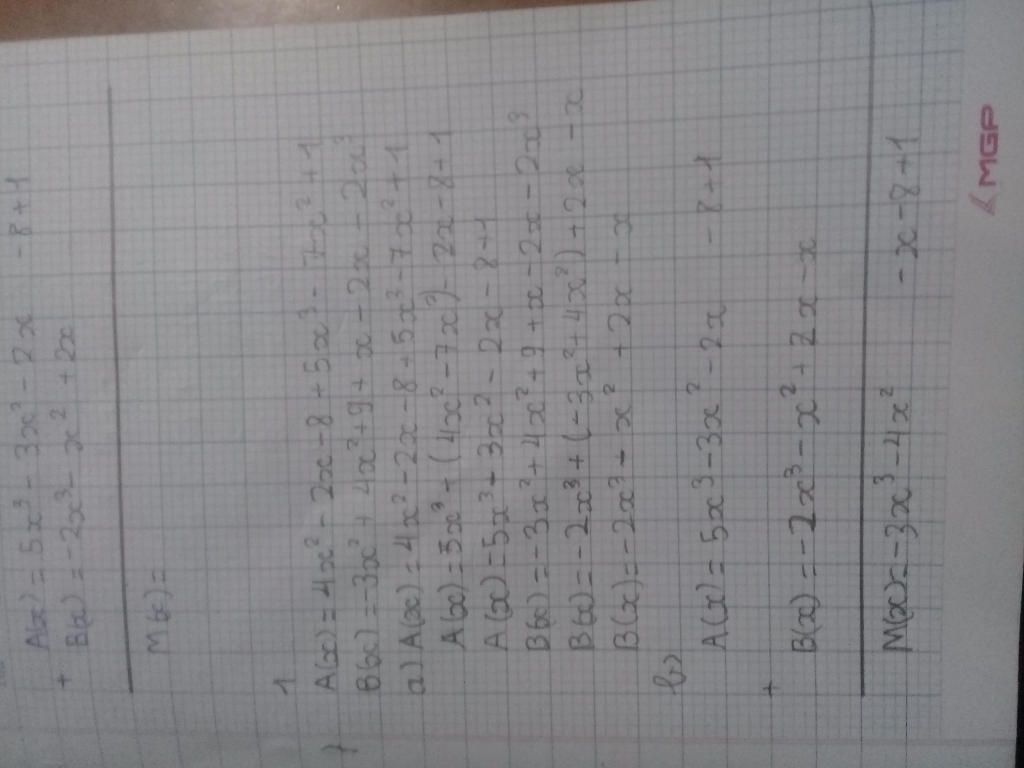 A(x) = 5x³ - 3x² - 2x - 8 + 1
+ B(x) = -2x³ - x² + 2x
M(x) =
1
A(x) = 4x² - 2x - 8 + 5x³ - 7x² + 1
B(x) = -3x² + 4x² + 9 + x - 2x - 2x³
a) A(x) = 4x² - 2x - 8 + 5x³ - 7x² + 1
A(x) = 5x³ + (4x² - 7x²) - 2x - 8 + 1
A(x) = 5x³ + 3x² - 2x - 8 + 1
B(x) = -3x² + 4x² + 9 + x - 2x - 2x³
B(x) = -2x³ + (-3x² + 4x²) + 2x - x
B(x) = -2x³ + x² + 2x - x
b)
A(x) = 5x³ - 3x² - 2x - 8 + 1
+
B(x) = -2x³ - x² + 2x - x
M(x) = -3x³ - 4x² - x - 8 + 1
MGP